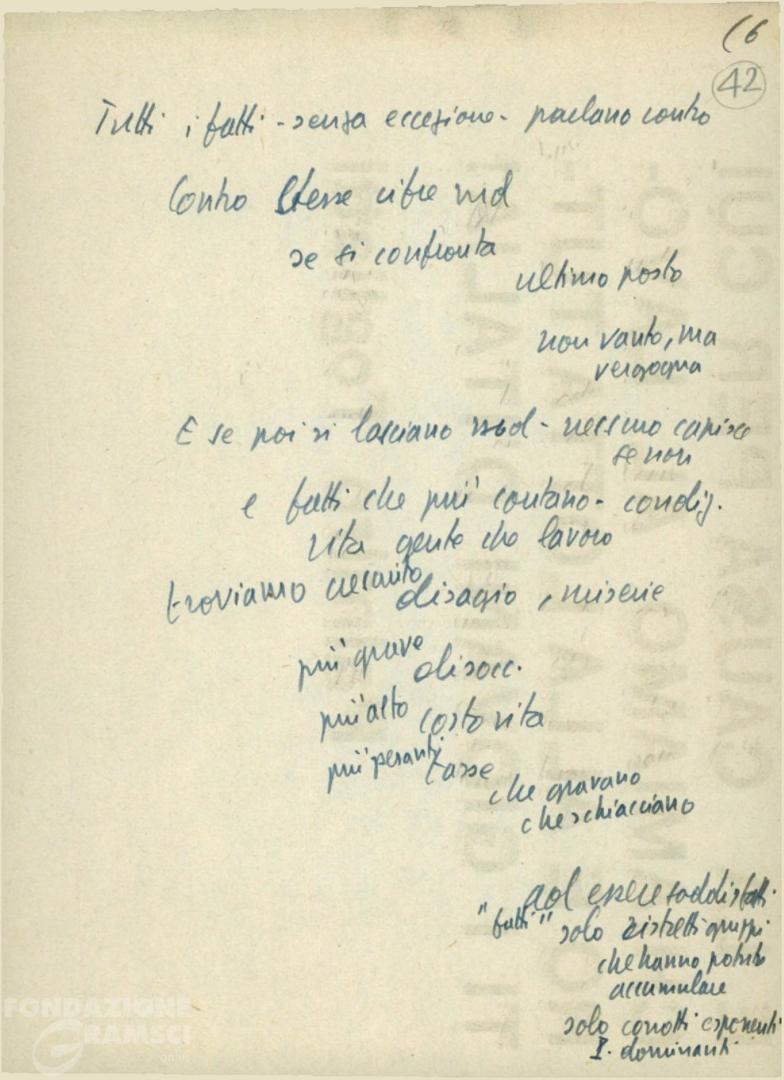 (6
42
Tutti i fatti - senza eccezione - parlano contro
Contro stesse cifre
se si confronta
ultimo posto
non vanto, ma
vergogna
E se poi si lasciano - nessuno capisce
se non
e fatti che più contano - condiz.
vita gente che lavora
troviamo disagio, miserie
più grave disocc.
più alto costo vita
più pesanti tasse
che gravano
che schiacciano
ad essere soddisfatti
"fatti" solo ristretti gruppi
che hanno potuto
accumulare
solo corrotti esponenti
dominanti
FONDAZIONE
GRAMSCI